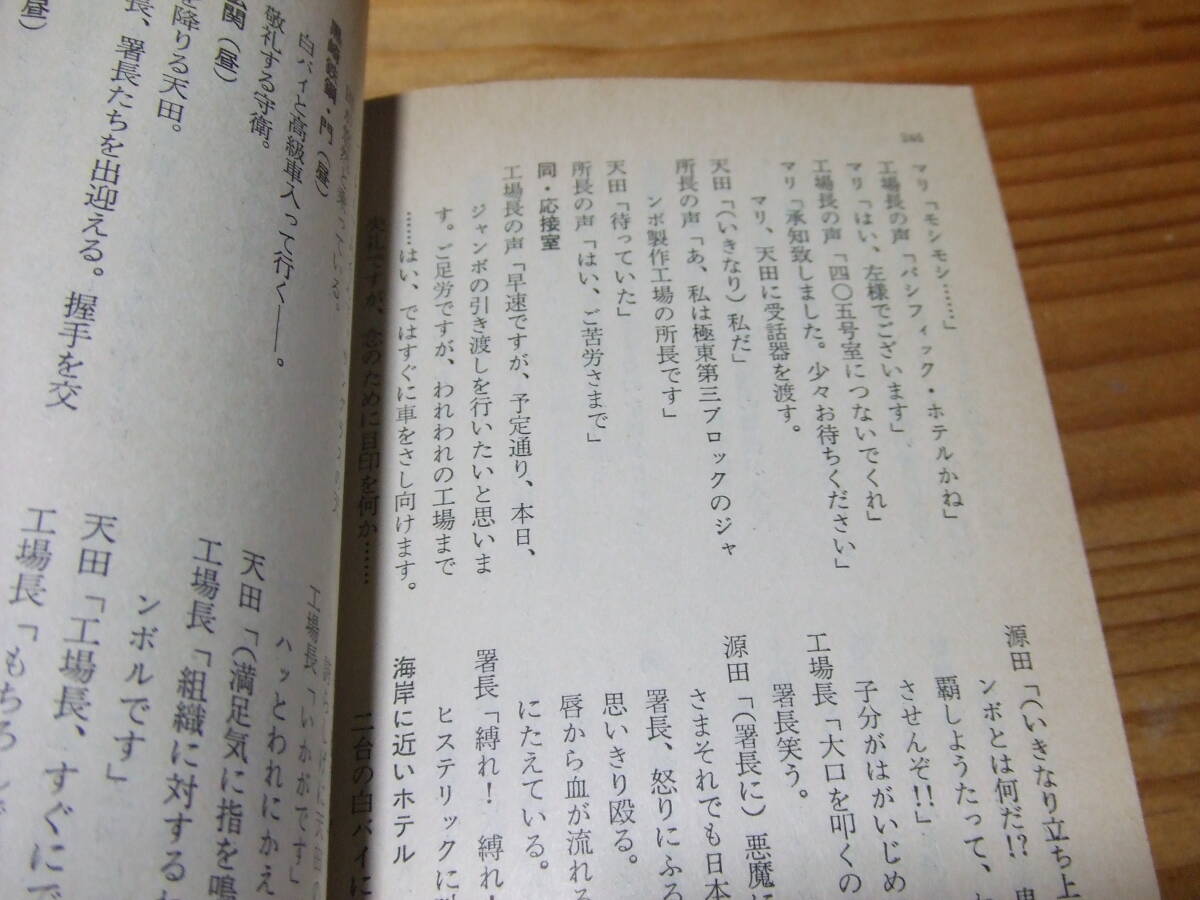 マリ「モシモシ……」
工場長の声「パシフィック・ホテルかね」
マリ「はい、左様でございます」
工場長の声「四〇五号室につないでくれ」
マリ「承知致しました。少々お待ちください」
マリ、天田に受話器を渡す。
天田「(いきなり)私だ」
所長の声「あ、私は極東第三ブロックのジャ
ンボ製作工場の所長です」
天田「待っていた」
所長の声「はい、ご苦労さまで」
同・応接室
工場長の声「早速ですが、予定通り、本日、
ジャンボの引き渡しを行いたいと思いま
す。ご足労ですが、われわれの工場まで
……はい、ではすぐに車をさし向けます。
失礼ですが、念のために目印を何か……
源田「(いきなり立ち上
ンボとは何だ!?
覇しようたって、
させんぞ!!」
子分がはがいじめ
工場長「大口を叩くの
署長笑う。
源田「(署長に)悪魔に
さまそれでも日本
署長、怒りにふる
思いきり殴る。
唇から血が流れる
にたえている。
署長「縛れ! 縛れ!
ヒステリックに
海岸に近いホテル
二台の白バイに
・門(昼)
白バイと高級車入って行く――。
敬礼する守衛。
関(昼)
を降りる天田。
長、署長たちを出迎える。握手を交
(昼)
工場長「いかがです」
ハッとわれにかえ
天田「(満足気に指を鳴
工場長「組織に対する
ンボルです」
天田「工場長、すぐにで
工場長「もちろんで